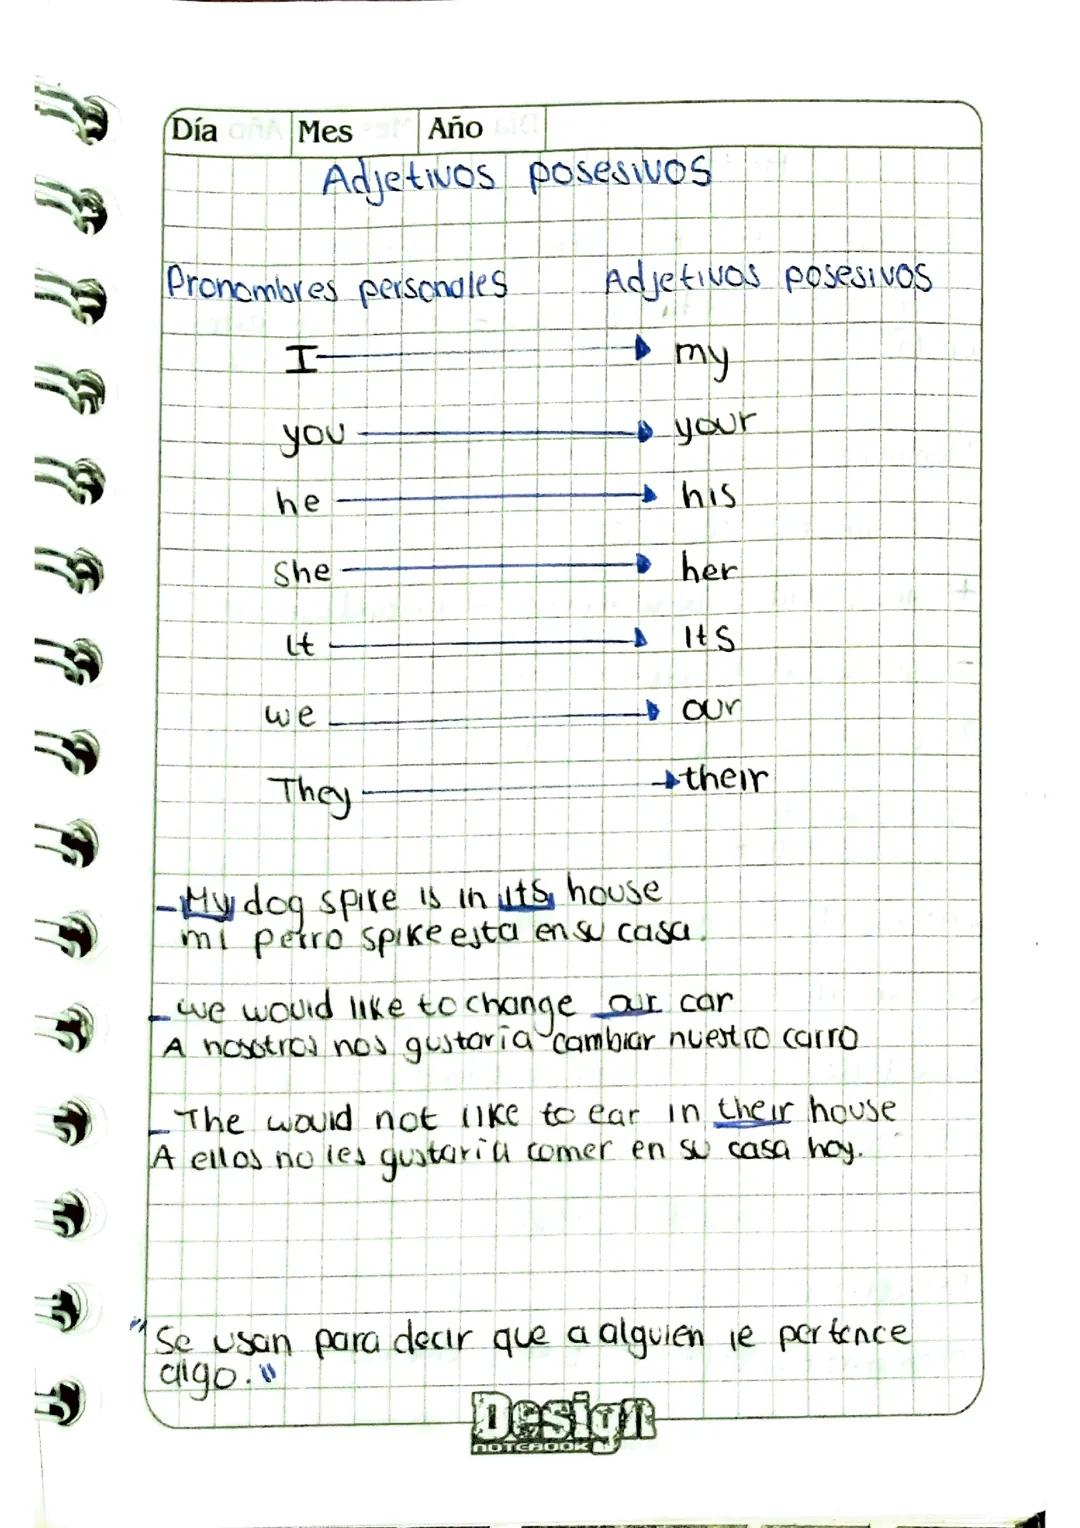 Día Mes Año
Adjetivos posesivos
Pronombres personales Adjetivos posesivos
I my
you your
he his
She her
It Its
we our
They their
- My dog spike is in its house
mi perro spike esta en su casa.
- we would like to change our car
A nosotros nos gustaria cambiar nuestro carro
- The would not like to ear in their house
A ellos no les gustaria comer en su casa hoy.
"Se usan para decir que a alguien le pertence
algo."
Design
NOTEBOOK